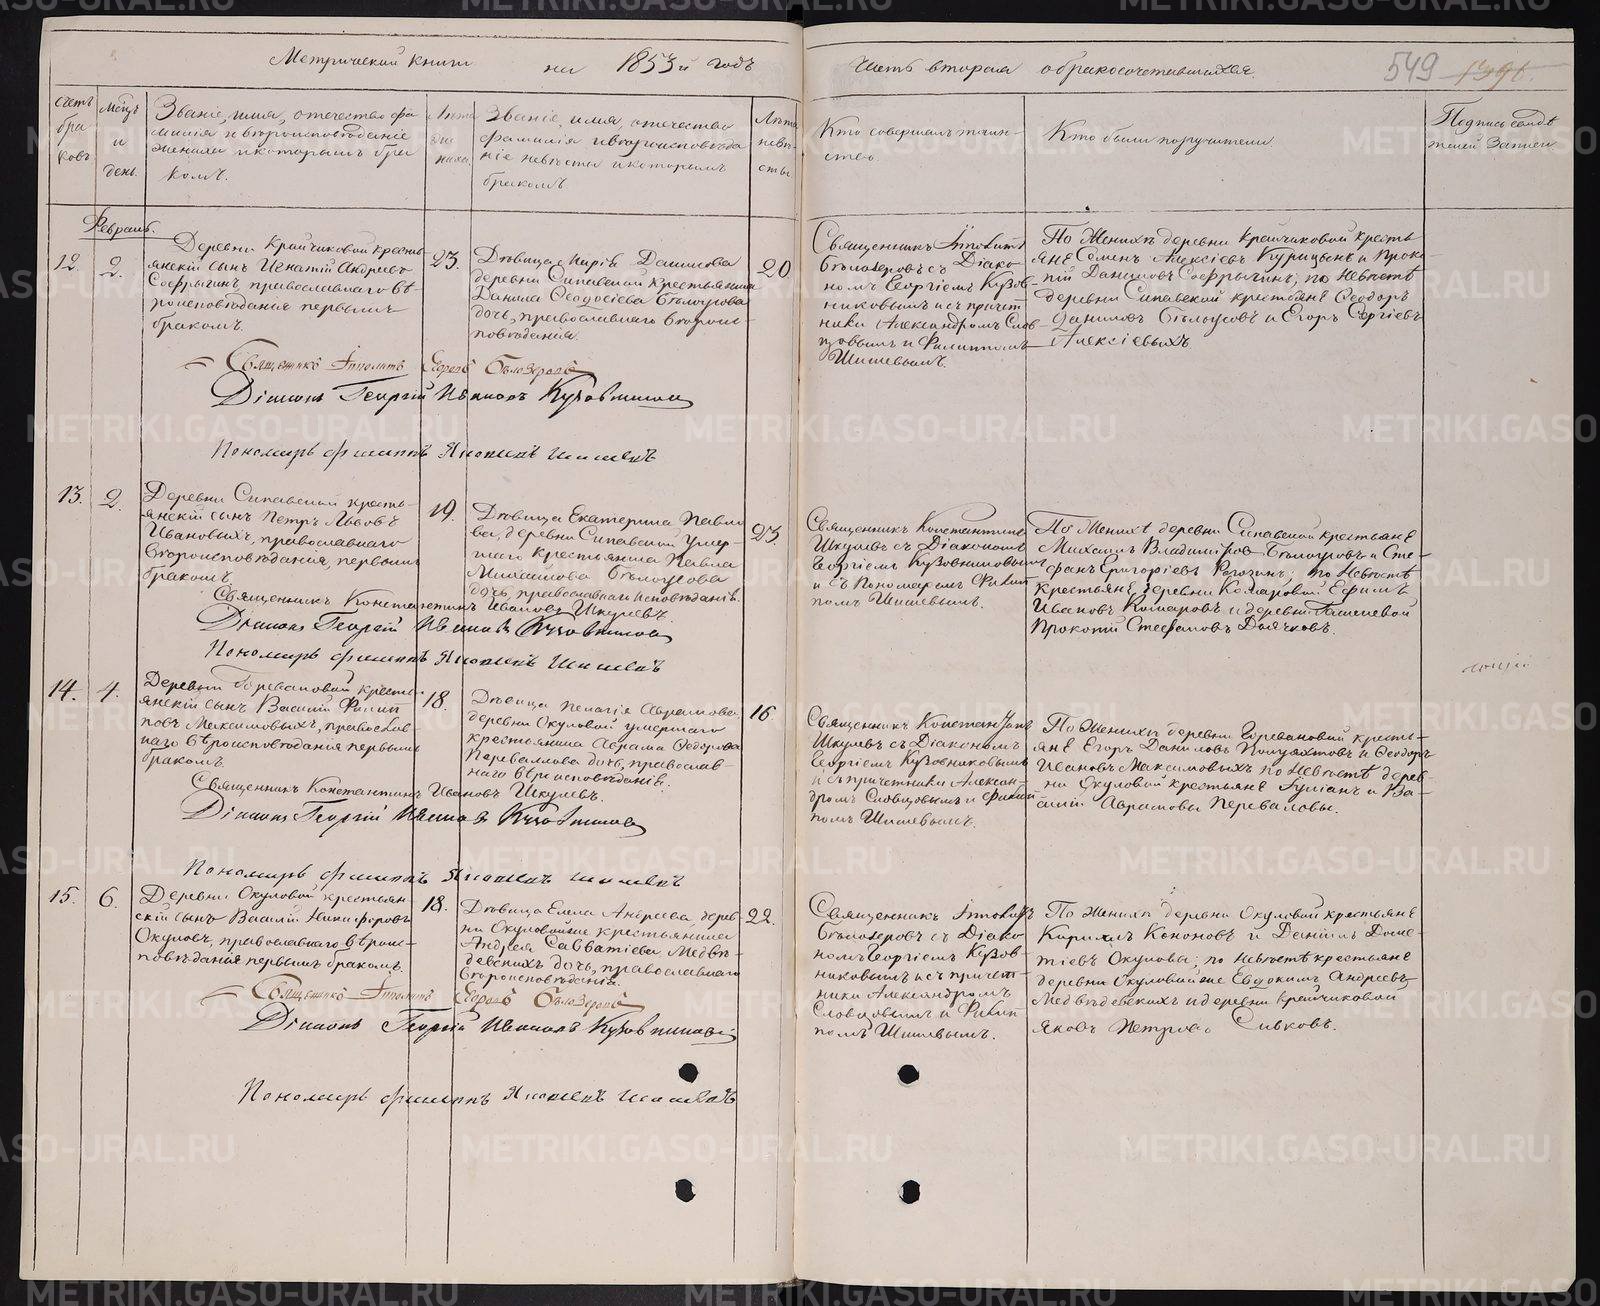 Метрической книги на 1853й годъ
Часть вторая о бракосочетавшихся.
549
1396.
счетъ браковъ
Мѣцъ и день.
Званіе, имя, отечество фамилія и вѣроисповѣданіе
жениха и которымъ бракомъ.
Лѣта жениха.
Званіе, имя, отечество
фамилія и вѣроисповѣданіе
невѣсты и которымъ
бракомъ
Лѣта невѣсты
Кто совершалъ таинство.
Кто были поручители.
Подпись свидѣтелей записи
Февраль.
12.
2.
Деревни Крайчиковой крестьянскій
сынъ Игнатій Андреевъ
православнаго вѣроисповѣданія
первымъ
бракомъ.
23.
Дѣвица Данилова
деревни Сипавской крестьянина
Данила Ѳеодосіева Бѣлоусова
дочь, православнаго вѣроисповѣданія.
20
Священникъ Ипполитъ
Бѣлозеровъ съ Діакономъ
Георгіемъ Кузовниковымъ
и съ причетники
Александромъ Словцовымъ
и Филиппомъ
Шишевымъ.
По женихѣ деревни Крайчиковой крестьяне
Семенъ Алексѣевъ Курицынъ и Прокопій
Даниловъ по невѣстѣ
деревни Сипавской крестьяне Ѳеодоръ
Даниловъ Бѣлоусовъ и Егоръ Сергіевъ
Алексіевыхъ
Священникъ Ипполитъ Егоровъ Бѣлозеровъ
Діаконъ Георгій Ивановъ Кузовниковъ
Пономарь Филиппъ Яковлевъ Шишевъ
13.
2.
Деревни Сипавской крестьянскій
сынъ Петръ Львовъ
Ивановыхъ, православнаго
вѣроисповѣданія, первымъ
бракомъ.
19.
Дѣвица Екатерина Павлова,
деревни Сипавской умершаго
крестьянина Павла
Михайлова Бѣлоусова
дочь, православнаго исповѣданія.
23.
Священникъ Константинъ
Шкулевъ съ Діакономъ
Георгіемъ Кузовниковымъ
и съ Пономаремъ Филиппомъ
Шишевымъ.
По женихѣ деревни Сипавской крестьяне
Михаилъ Владиміровъ Бѣлоусовъ и Стефанъ
Григоріевъ Рогозинъ; по невѣстѣ
крестьяне деревни Комаровой Ефимъ
Ивановъ Комаровъ и деревни
Прокопій Стефановъ Дьячковъ.
Священникъ Константинъ Ивановъ Шкулевъ.
Діаконъ Георгій Ивановъ Кузовниковъ
Пономарь Филиппъ Яковлевъ Шишевъ
14.
4.
Деревни Горевановой крестьянскій
сынъ Василій Филипповъ
Максимовыхъ, православнаго
вѣроисповѣданія первымъ
бракомъ.
18.
Дѣвица Пелагія Аврамова
деревни Окуловой умершаго
крестьянина Аврама Ѳедорова
Перевалова дочь, православнаго
вѣроисповѣданія.
16.
Священникъ Константинъ
Шкулевъ съ Діакономъ
Георгіемъ Кузовниковымъ
и съ причетники Александромъ
Словцовымъ и Филиппомъ
Шишевымъ.
По женихѣ деревни Горевановой крестьяне
Егоръ Даниловъ и Ѳеодоръ
Ивановъ Максимовыхъ по невѣстѣ деревни
Окуловой крестьяне и Василій
Аврамовы Переваловы.
Священникъ Константинъ Ивановъ Шкулевъ.
Діаконъ Георгій Ивановъ Кузовниковъ
Пономарь Филиппъ Яковлевъ Шишевъ
15.
6.
Деревни Окуловой крестьянскій
сынъ Василій Никифоровъ
Окуловъ, православнаго вѣроисповѣданія
первымъ бракомъ.
18.
Дѣвица Елена Андреева, деревни
Окуловой же крестьянина
Андрея Савватіева Медвѣдевскихъ
дочь, православнаго
вѣроисповѣданія.
22.
Священникъ Ипполитъ
Бѣлозеровъ съ Діакономъ
Георгіемъ Кузовниковымъ
и съ причетники
Александромъ
Словцовымъ и Филиппомъ
Шишевымъ.
По женихѣ деревни Окуловой крестьяне
Кириллъ Кононовъ и Даніилъ Дометіевъ
Окуловы; по невѣстѣ крестьяне
деревни Окуловой же Евдокимъ Андреевъ
Медвѣдевскихъ и деревни Крайчиковой
Яковъ Петровъ Сивковъ.
Священникъ Ипполитъ Егоровъ Бѣлозеровъ
Діаконъ Георгій Ивановъ Кузовниковъ
Пономарь Филиппъ Яковлевъ Шишевъ
METRIKI.GASO-URAL.RU